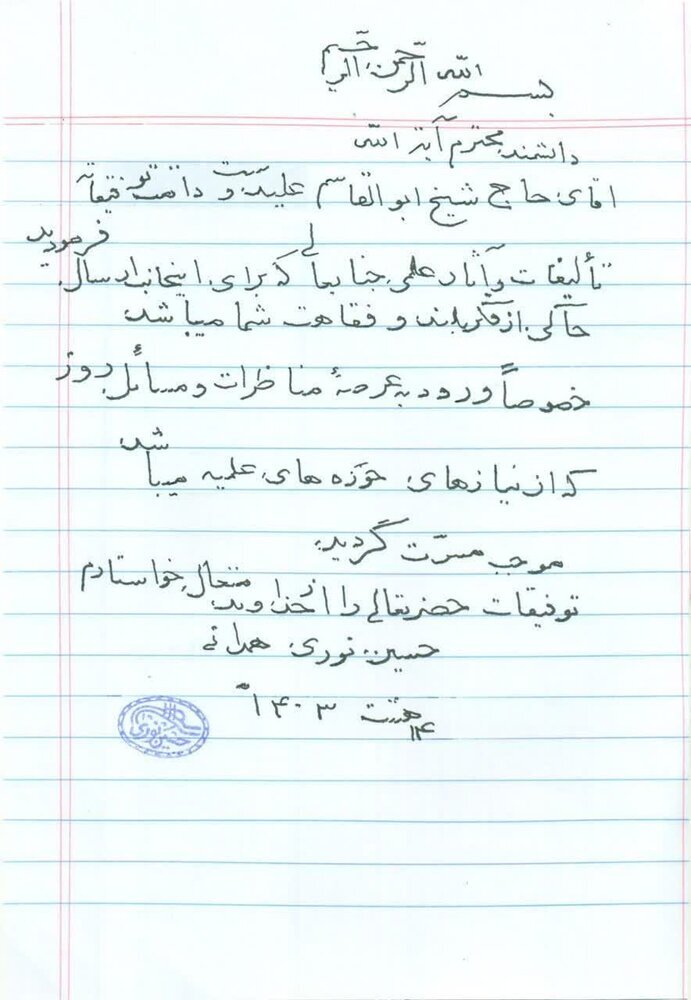 بسم الله الرحمن الرحیم
دانشمند محترم آیة الله
اقای حاج شیخ ابوالقاسم علیدوست دامت توفیقاته
تألیفات و آثار علمی جنابعالی که برای اینجانب ارسال فرمودید
حاکی از فکر بلند و فقاهت شما میباشد
خصوصاً ورود به عرصهٔ مناظرات و مسائل روز
که از نیازهای حوزه های علمیه میباشد
موجب مسرّت گردید
توفیقات حضرتعالی را از خداوند متعال خواستارم
حسین نوری همدانی
۱۴۰۳
حسین نوری